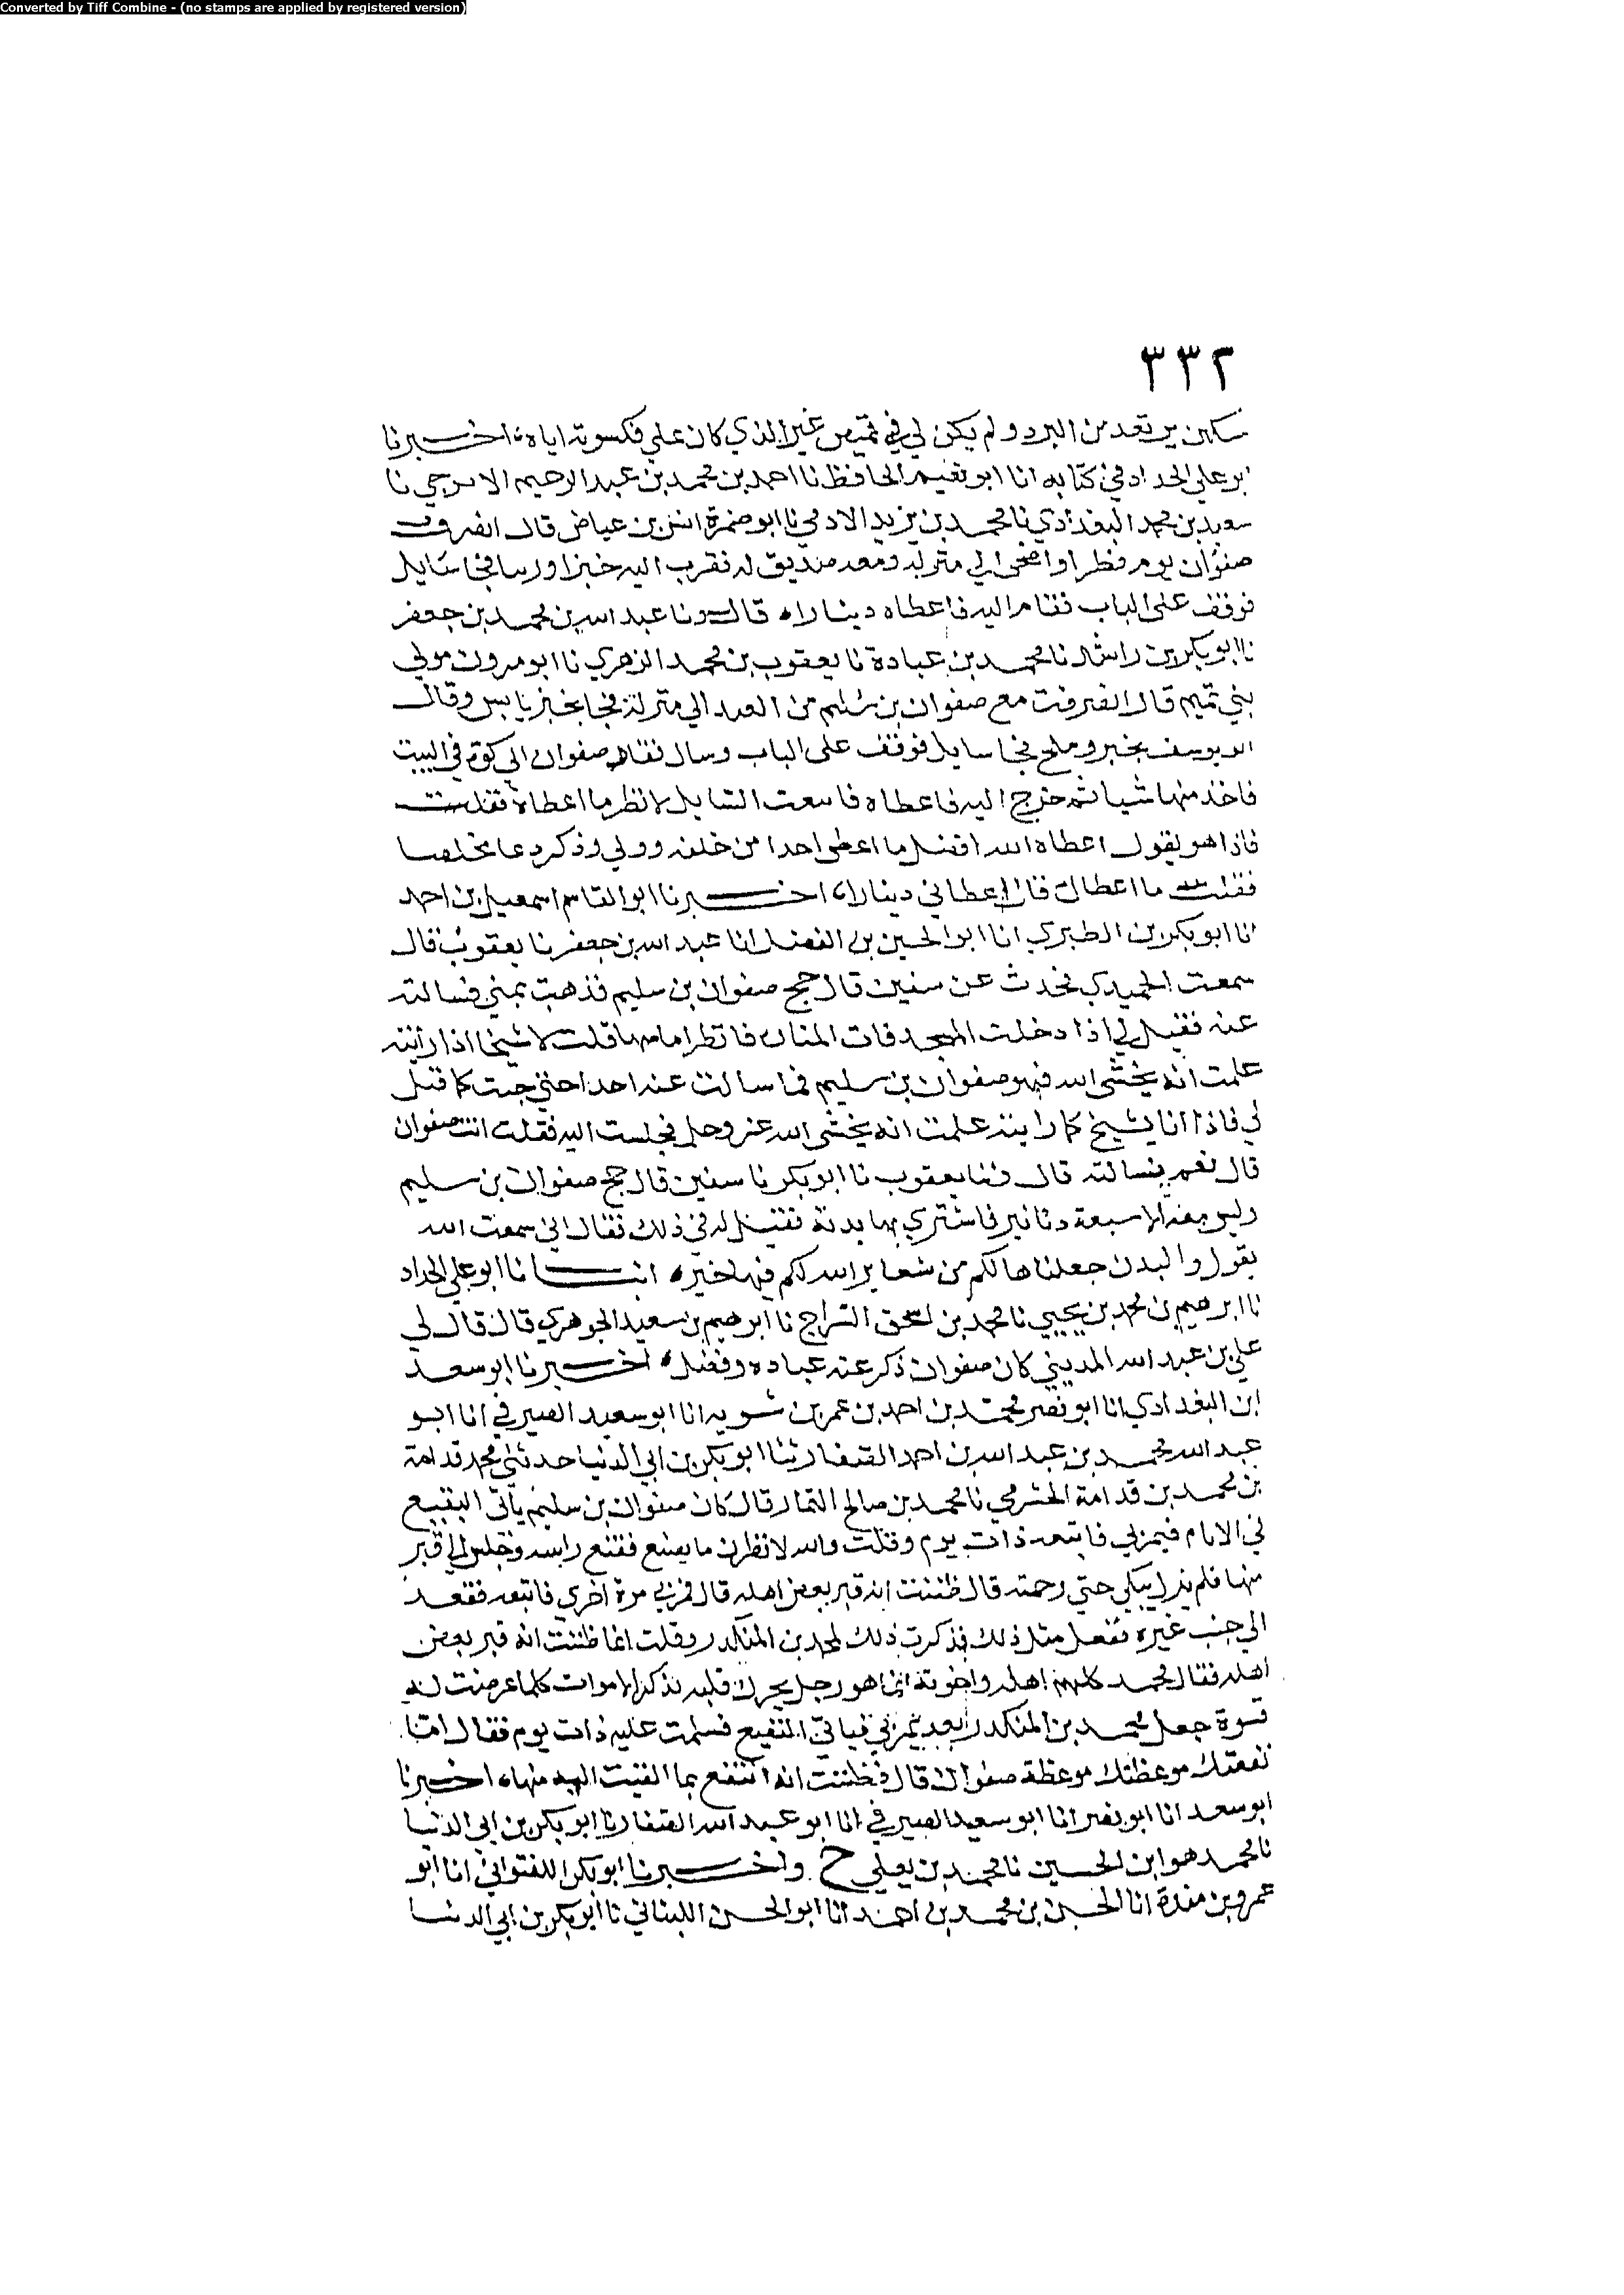 Converted by Tiff Combine - (no stamps are applied by registered version)
٣٣٢
سكين يرتعد من البرد ولم يكن لي في قميص غير الذي كان علي فكسوته اياه اخبرنا
ابو علي الحداد في كتابه انا ابو نعيم الحافظ نا احمد بن محمد بن عبد الرحيم نا
سعيد بن محمد البغدادي نا محمد بن يزيد الادمي نا ابو ضمرة انس بن عياض قال انصرف
صفوان يوم فطر او اضحى الي منزله ومعه صديق له فقرب اليه خبزا وزيتا فجا سايل
فوقف على الباب فقام اليه فاعطاه دينارا قال ونا عبد الله بن محمد بن جعفر
نا ابو بكر بن راشد نا محمد بن عبادة نا يعقوب بن محمد الزهري نا ابو مروان مولي
بني تميم قال انصرفت مع صفوان بن سليم من العيد الي منزله فجا بخبز يابس وقال
ابو يوسف بخبز وملح فجا سايل فوقف على الباب وسال فقام صفوان الي كوة في البيت
فاخذ منها شيا ثم خرج اليه فاعطاه فاتبعت السايل لانظر ما اعطاه فقلت
فاذا هو يقول اعطاه الله افضل ما اعطى احدا من خلقه وولي وذكر دعا مخلصا
فقلت ما اعطاك قال اعطاني دينارا اخبرنا ابو القاسم اسمعيل بن احمد
انا ابو بكر بن الطبري انا ابو الحسين بن الفضل انا عبد الله بن جعفر نا يعقوب قال
سمعت الحميدي يحدث عن سفين قال حج صفوان بن سليم فذهبت بمنى فسالت
عنه فقيل لي اذا دخلت المسجد فات المنارة فانظر امامها قلت لا شيخا اذا رايته
علمت انه يخشى الله فهو صفوان بن سليم فما سالت عنه احدا حتي جيت كما قيل
لي فاذا انا بشيخ كما رايته علمت انه يخشى الله عز وجل فجلست اليه فقلت انت صفوان
قال نعم فسالته قال ونا يعقوب نا ابو بكر نا سفين قال حج صفوان بن سليم
وليس معه الا سبعة دنانير فاشتري بها بدنة فقيل له في ذلك فقال اني سمعت الله
يقول والبدن جعلناها لكم من شعاير الله لكم فيها خير انبانا ابو علي الحداد
نا ابرهيم بن محمد بن يحيي نا محمد بن اسحق السراج نا ابرهيم بن سعيد الجوهري قال قال لي
علي بن عبد الله المديني كان صفوان ذكر عنه عباده وفضل اخبرنا ابو سعد
ابن البغدادي انا ابو نصر محمد بن احمد بن عمر بن شبويه انا ابو سعيد الصيرفي انا ابو
عبد الله محمد بن عبد الله بن احمد الصفار ثنا ابو بكر بن ابي الدنيا حدثني محمد قدامة
بن محمد بن قدامة الخشرمي نا محمد بن صالح التمار قال كان صفوان بن سليم ياتي البقيع
في الايام فيمر بي فاتبعه ذات يوم وقلت والله لانظرن ما يصنع فقنع راسه وجلس الي قبر
منها فلم يزل يبكي حتي رحمته قال ظننت انه قبر بعض اهله قال فمر بي مرة اخري فاتبعه فقعد
الي جنب غيره ففعل مثل ذلك فذكرت ذلك لمحمد بن المنكدر وقلت انما ظننت انه قبر بعض
اهله فقال محمد كلهم اهله واخوته انما هو رجل يحرك قلبه بذكر الاموات كلما عرضت له
قسوة جعل محمد بن المنكدر بعد يمر بي فياتي البقيع فسلمت عليه ذات يوم فقال اما
نفعتك موعظتك موعظة صفوان قال فظننت انه انتفع بما القيت اليه منها اخبرنا
ابو سعد انا ابو نصر انا ابو سعيد الصيرفي انا ابو عبد الله الصفار نا ابو بكر بن ابي الدنيا
نا محمد هو ابن الحسين نا محمد بن يعلي ح واخبرنا ابو بكر اللفتواني انا ابو
عمرو بن مندة انا الحسن بن محمد بن احمد انا ابو الحسن اللبناني نا ابو بكر بن ابي الدنيا